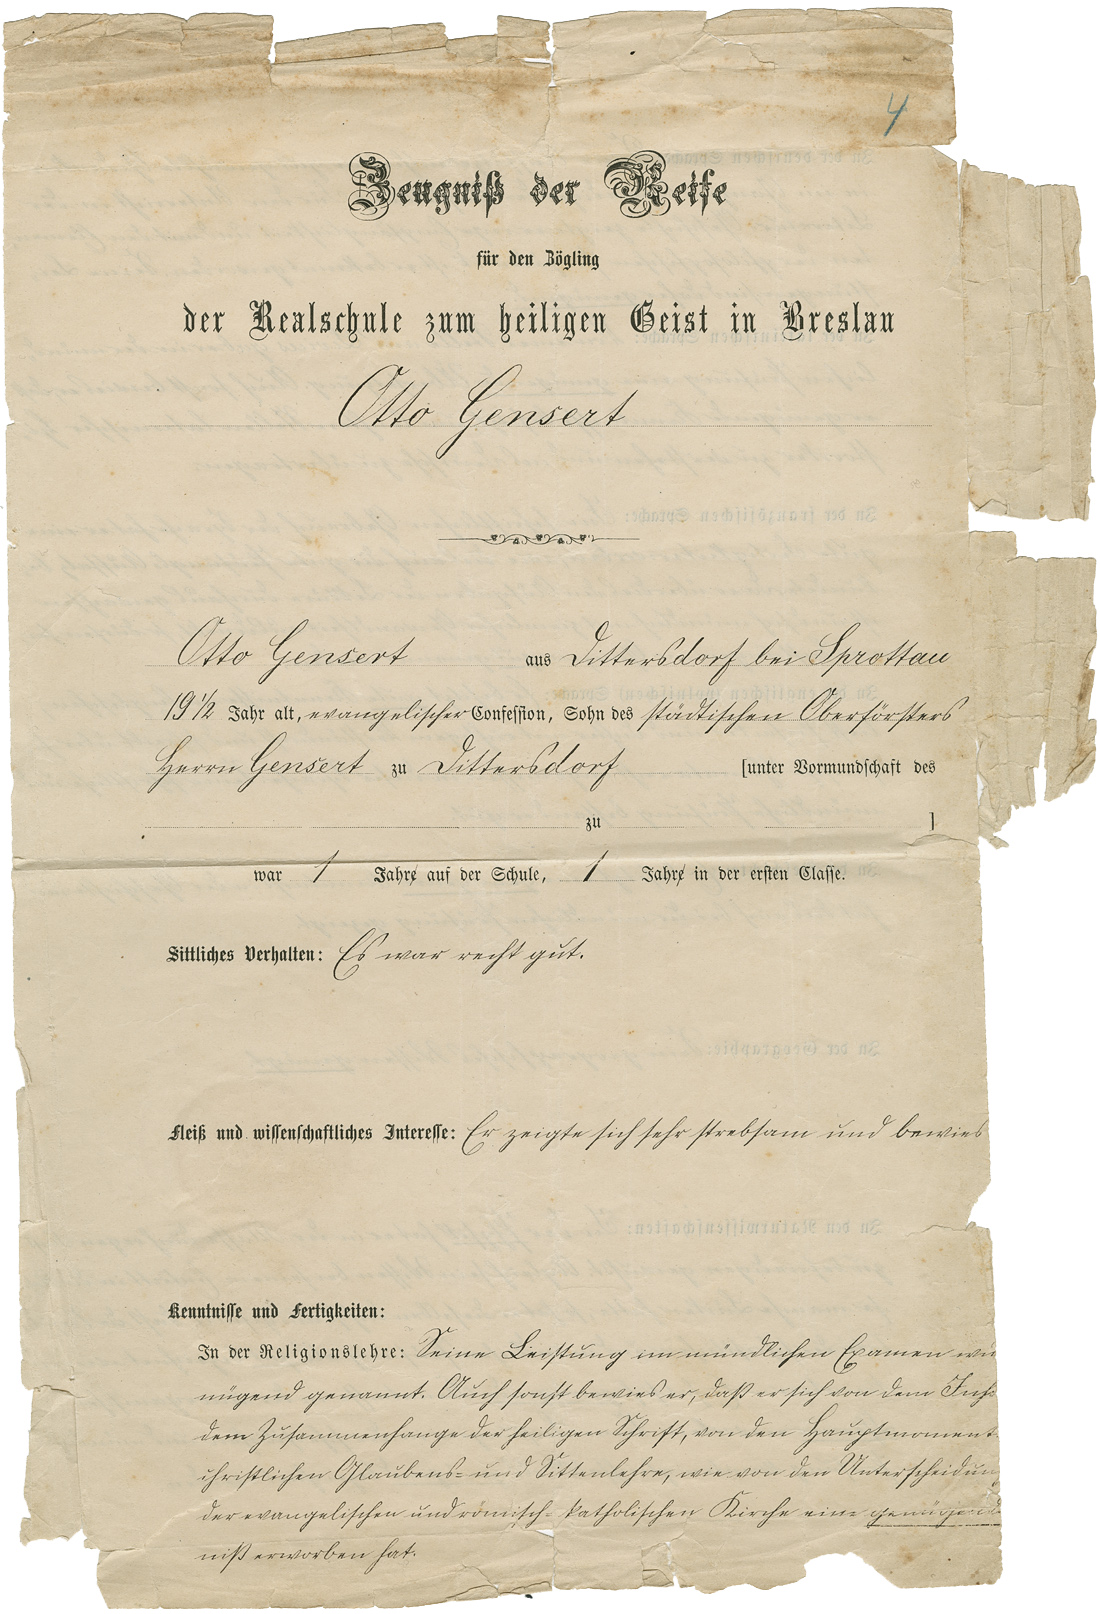 4
Zeugniß der Reife
für den Zögling
der Realschule zum heiligen Geist in Breslau
Otto Gensert
Otto Gensert aus Dittersdorf bei Sprottau
19 1/2 Jahr alt, evangelischer Confession, Sohn des städtischen Oberförsters
Herrn Gensert zu Dittersdorf [unter Vormundschaft des
zu ]
war 1 Jahr auf der Schule, 1 Jahr in der ersten Classe.
Sittliches Verhalten: Es war recht gut.
Fleiß und wissenschaftliches Interesse: Er zeigte sich sehr strebsam und bewies
Kenntnisse und Fertigkeiten:
In der Religionslehre: Seine Leistung im mündlichen Examen wu
nügend genannt. Auch sonst bewies er, daß er sich von dem Inh
dem Zusammenhange der heiligen Schrift, von den Hauptmoment
christlichen Glaubens- und Sittenlehre, wie von den Unterscheidun
der evangelischen und römisch-katholischen Kirche eine genügend
niß erworben hat.